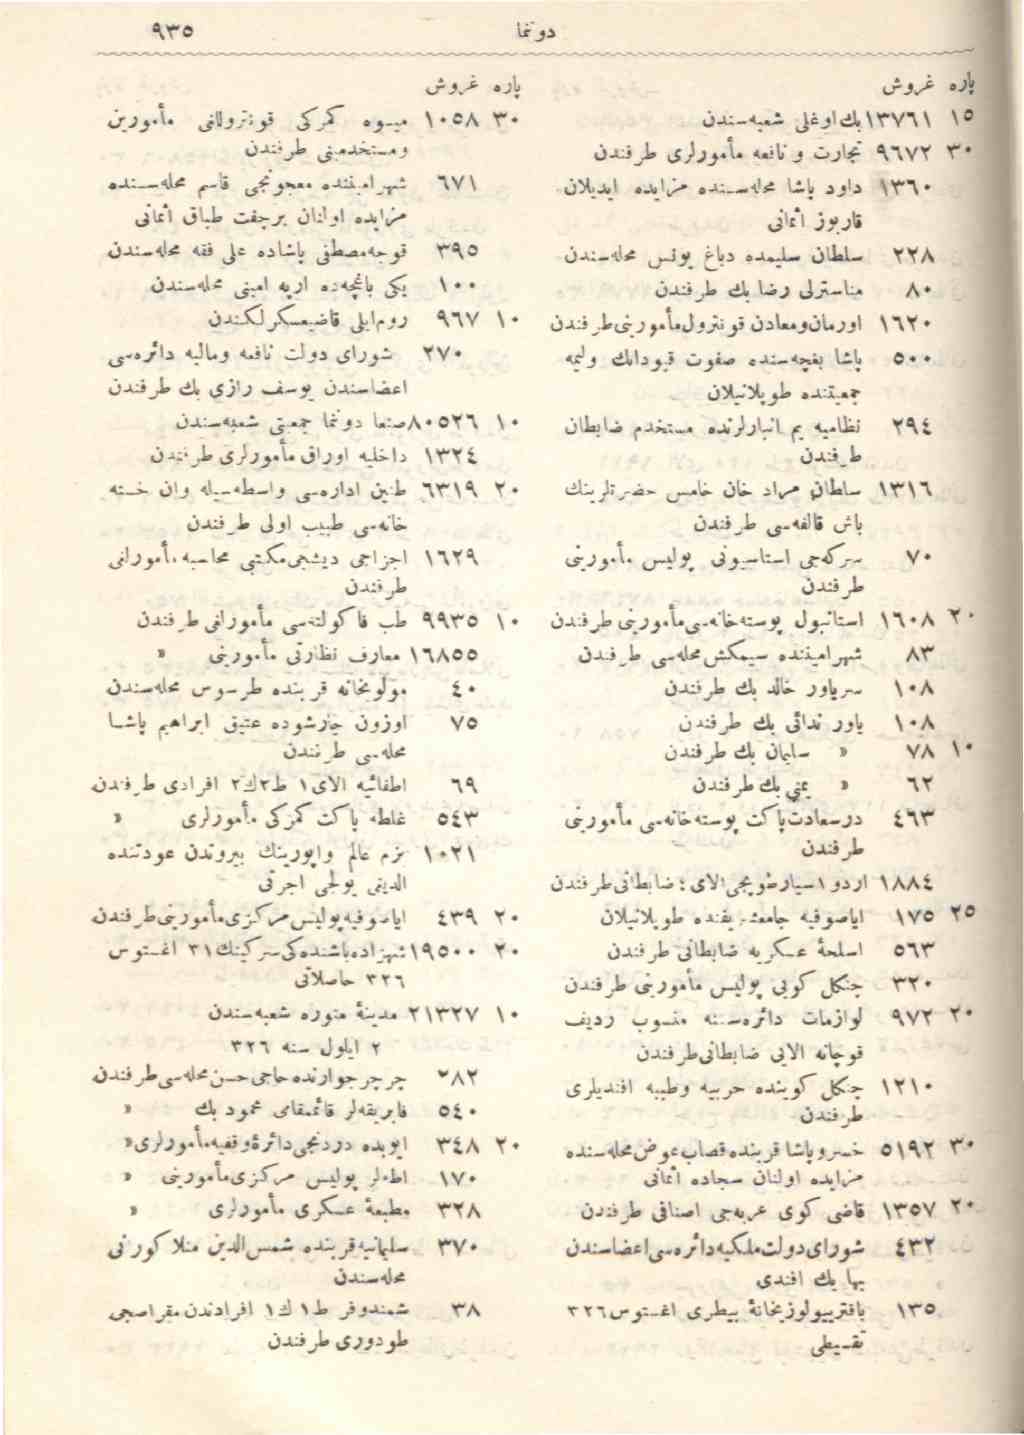 دوتنما ٩٣٥
پاره غروش
١٥ ١٣٧٦١ بك‌اوغلی شعبه‌سندن
٣٠ ٩٦٧٢ تجارت و نافعه مأمورلری طرفندن
١٣٦٠ داود پاشا محله‌سنده مزایده ایدیلان
قاربوز اثمانی
٢٢٨ سلطان سلیمده دباغ یونس محله‌سندن
٨٠ مناسترلی رضا بك طرفندن
١٦٢٠ اورمان‌ومعادن قونترول‌مأمورینی‌طرفندن
٥٠٠ پاشا بغچه‌سنده صفوت قپودانك ولیمه
جمعیتنده طوپلانیلان
٢٩٤ نظامیه یم انبارلرنده مستخدم ضابطان
طرفندن
١٣١٦ سلطان مراد خان خامس حضرتلرینك
باش قالفه‌سی طرفندن
٧٠ سركه‌جی استاسیونی پولیس مأمورینی
طرفندن
٢٠ ١٦٠٨ استانبول پوسته‌خانه‌سی‌مأمورینی طرفندن
٨٣ شهرامیننده سیمكش‌محله‌سی طرفندن
١٠٨ سریاور خالد بك طرفندن
١٠٨ یاور ندائی بك طرفندن
١٠ ٧٨ » سلیمان بك طرفندن
٦٢ » یمنی بك طرفندن
٤٦٣ درسعادت‌پاكت پوسته‌خانه‌سی مأمورینی
طرفندن
١٨٨٤ اردو ١ سیارطوپجی‌آلای ٤ ضابطانی طرفندن
٢٥ ١٧٥ ایاصوفیه جامعشریفنده طوپلانیلان
٥٦٣ اسلحهٔ عسكریه ضابطانی طرفندن
٣٢٠ چنكل كویی پولیس مأمورینی طرفندن
٢٠ ٩٧٢ لوازمات دائره‌سنه منسوب ردیف
قوچانه آلایی ضابطانی‌طرفندن
١٢١٠ چنكل كوینده حربیه وطبیه افندیلری
طرفندن
٣٠ ٥١٩٢ خسروپاشا قربنده قصاب‌عوض‌محله‌سنده
مزایده اولنان سجاده اثمانی
٢٠ ١٣٥٧ قاضی كوی عربه‌جی اصنافی طرفندن
٤٣٢ شورای‌دولت‌ملكیه‌دائره‌سی‌اعضاسندن
بها بك افندی
١٣٥ باقتریولوژیخانهٔ بیطری اغستوس ٣٢٦
تقسیطی
پاره غروش
٣٠ ١٠٥٨ میوه كمركی قونترولانی مأمورین
ومستخدمینی طرفندن
٦٧١ شهرامیننده معجونجی قاسم محله‌سنده
مزایده اولنان برچفت طباق اثمانی
٣٩٥ قوجه‌مصطفی پاشاده علی فقه محله‌سندن
١٠٠ یكی باغچه‌ده ارپه امینی محله‌سندن
١٠ ٩٦٧ روم‌ایلی قاضیعسكرلكندن
٢٧٠ شورای دولت نافعه ومالیه دائره‌سی
اعضاسندن یوسف رازی بك طرفندن
١٠ ٨٠٥٢٦ صنعا دوتنما جمعیتی شعبه‌سندن
١٣٢٤ داخلیه اوراق مأمورلری طرفندن
٢٠ ٦٣١٩ طنین اداره‌سی واسطه‌سیله وان خسته
خانه‌سی طبیب اولی طرفندن
١٦٢٩ اجزاجی دیشجی‌مكتبی محاسبه‌مأمورانی
طرفندن
١٠ ٩٩٣٥ طب فاكولته‌سی مأمورانی طرفندن
١٦٨٥٥ معارف نظارتی مأمورینی »
٤٠ مولویخانه قربنده طرسوس محله‌سندن
٧٥ اوزون چارشوده عتیق ابراهیم پاشا
محله‌سی طرفندن
٦٩ اطفائیه آلای١ ط٢ك٢ افرادی طرفندن
٥٤٣ غلطه پاكت كمركی مأمورلری »
١٠٢١ بزم عالم واپورینك بیروتدن عودتنده
الدیغی یولجی اجرتی
٢٠ ٤٣٩ ایاصوفیه‌پولیس‌مركزی‌مأمورینی‌طرفندن
٢٠ ١٩٥٠٠ شهزاده‌باشنده‌كی‌سركینك ٣١ اغستوس
٣٢٦ حاصلاتی
١٠ ٢١٣٢٧ مدینهٔ منوره شعبه‌سندن
٢ ایلول سنه ٣٢٦
٢٨٢ چرچر جوارنده حاجی‌حسن‌محله‌سی‌طرفندن
٥٤٠ فابریقه‌لر قائممقامی محمود بك »
٢٠ ٣٤٨ ایوبده دردنجی‌دائرهٔ‌وقفیه‌مأمورلری»
١٧٠ اطه‌لر پولیس مركزی‌مأمورینی »
٣٢٨ مطبعهٔ عسكری مأمورلری »
٣٧٠ سلیمانیه‌قربنده شمس‌الدین منلا كورانی
محله‌سندن
٣٨ شمندوفر ط١ ك١ افرادندن مقراصجی
طودوری طرفندن